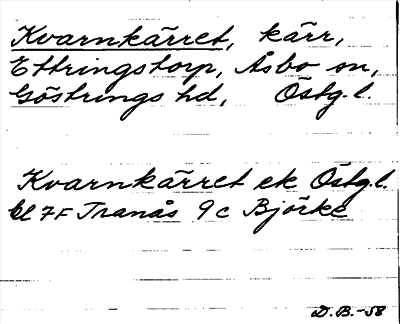 Kvarnkärret, kärr,
Ettringstorp, Åsbo sn,
Göstrings hd, Östg.l.
Kvarnkärret ek Östg.l.
bl 7F Tranås 9c Björke
D.B.-58